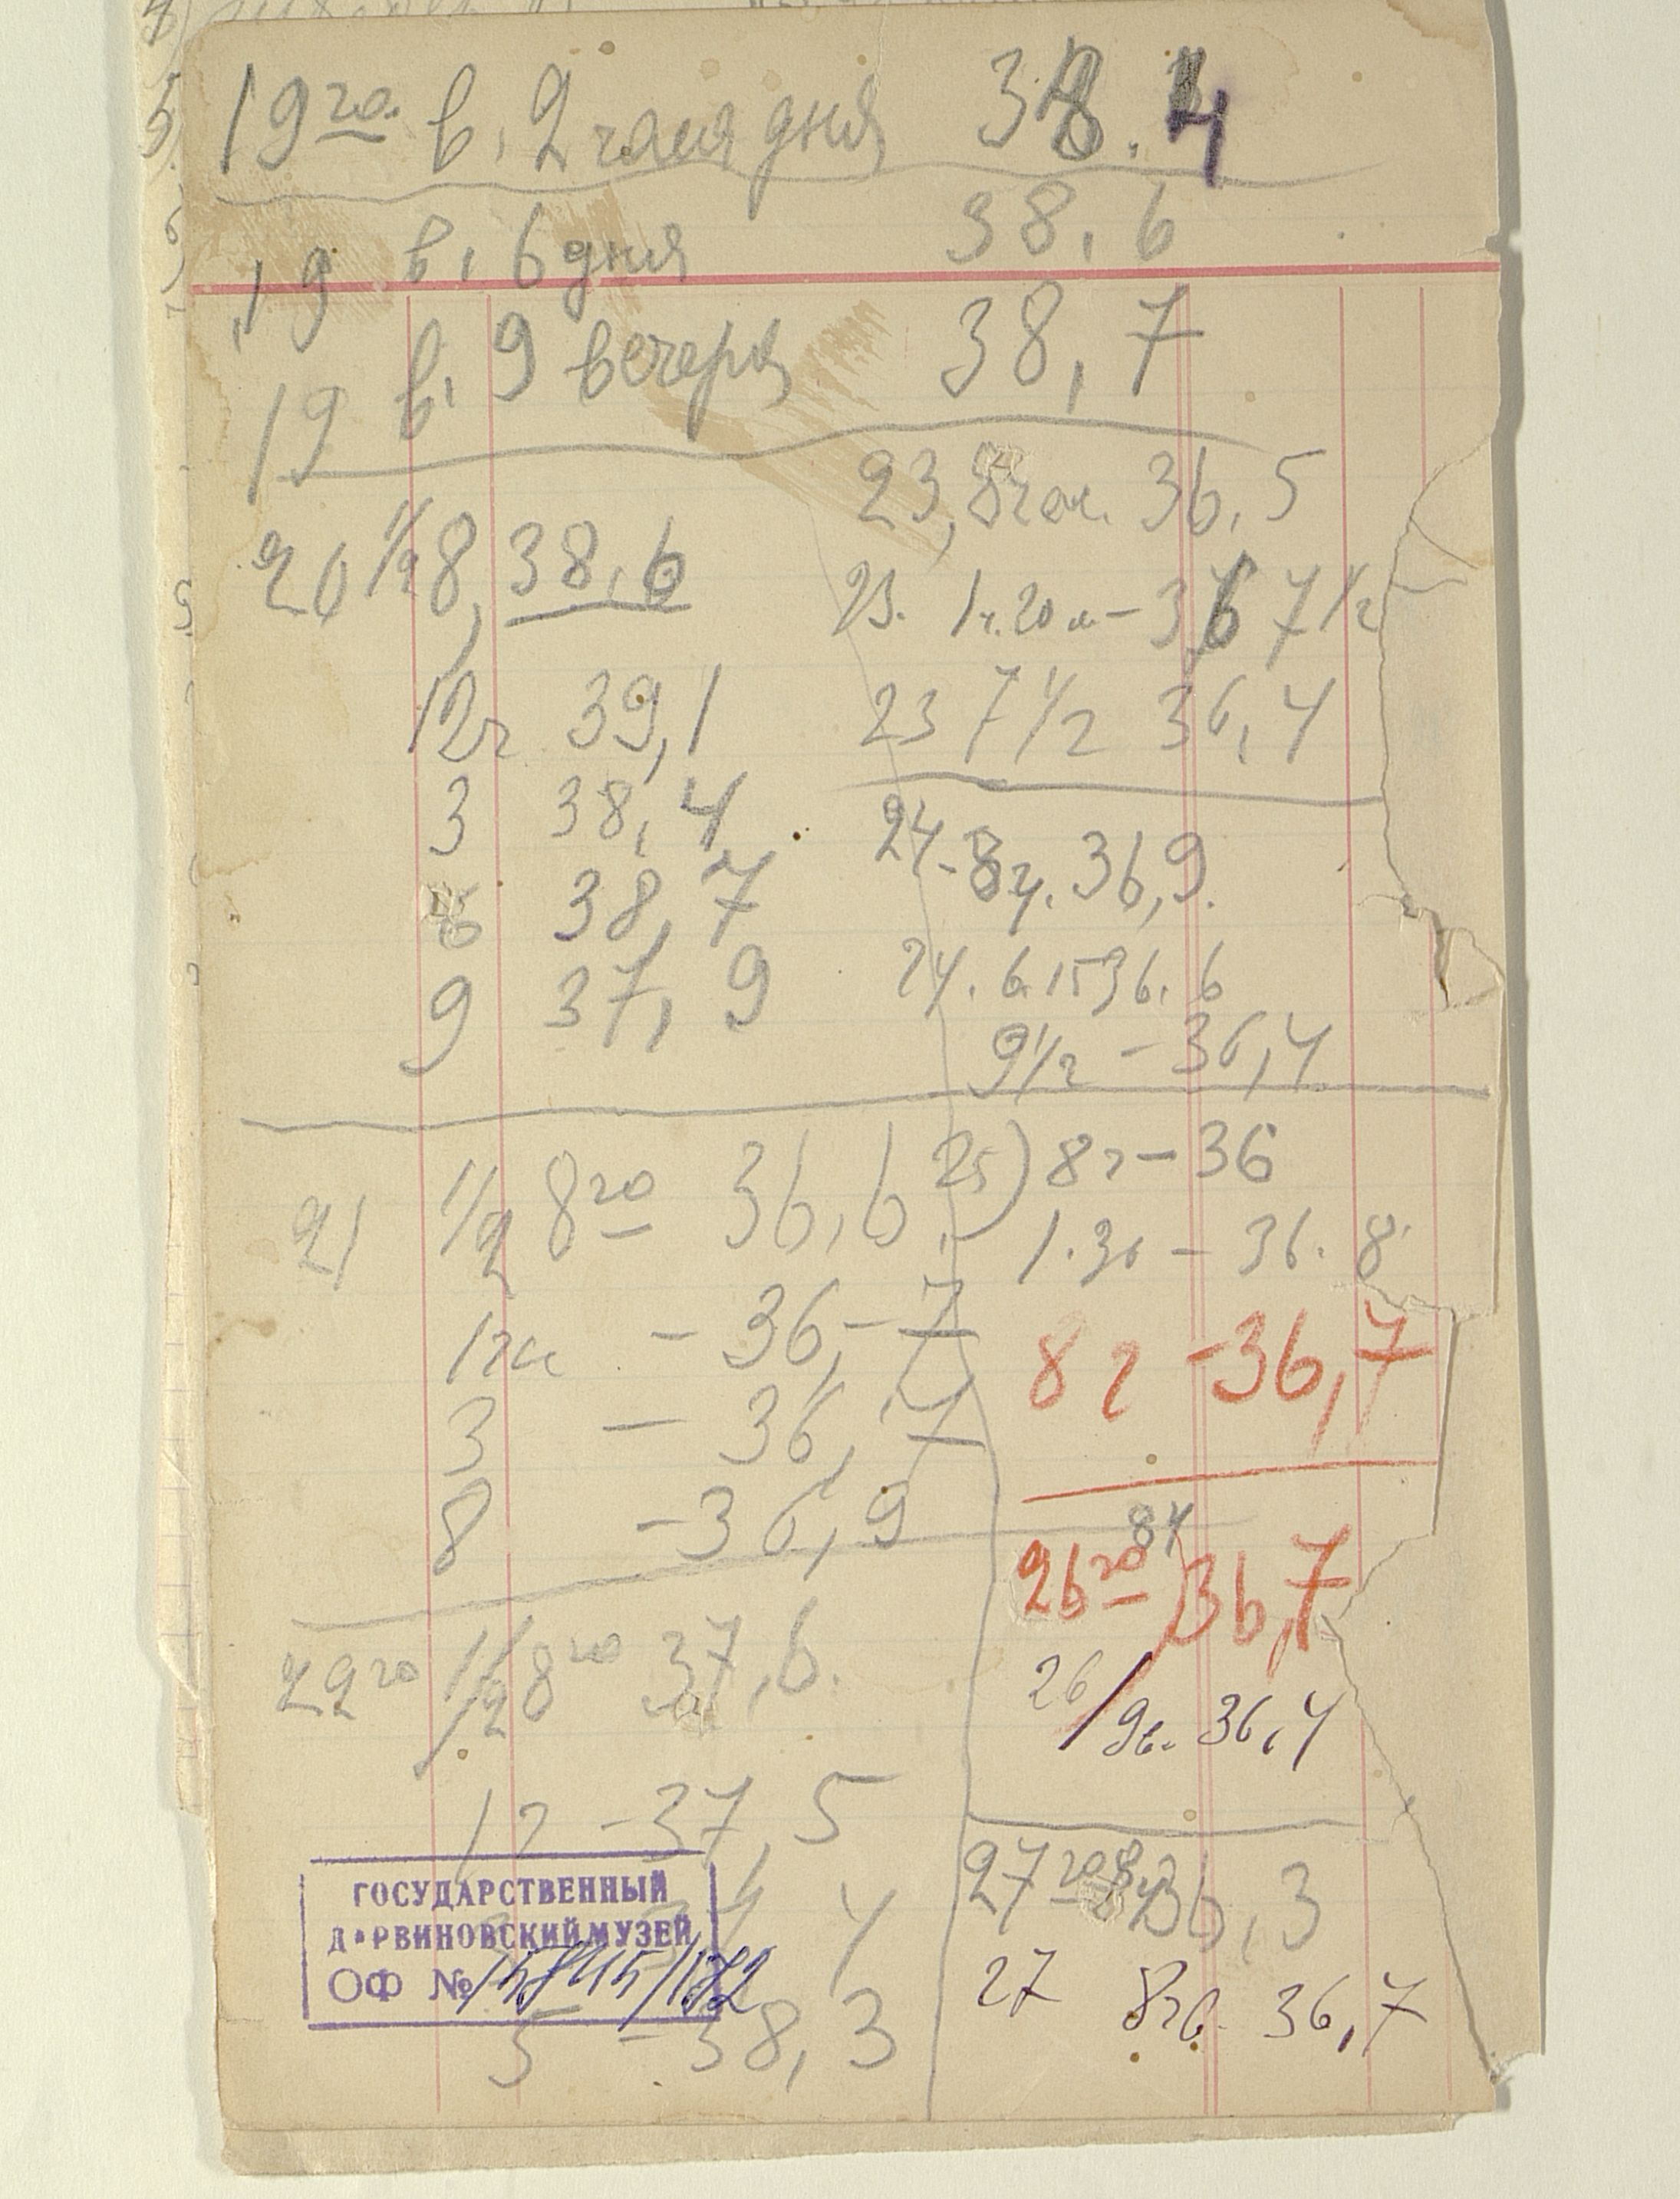 19го в, 2 часа дня 38.4
19 в, 6 дня 38,6
19 в, 9 вечера 38,7
20 1/2 8, 38,6
12ч 39,1
3 38,4
6 38,7
9 37,9
21 1/2 8го 36,6
1ча - 36,-7
3 - 36,7
8 - 36,9
22го 1/2 8го 37,6.
12 - 37,5
4
5 - 38,3
23, 8 час. 36,5
23. 1ч.20м - 36 7 1/2
23 7 1/2 36,4
24 - 8ч. 36,9.
24. 6.15 36.6
9 1/2 - 36,4
25) 8ч - 36
1.30 - 36.8
8ч - 36,7
8ч
26го 36,7
26/9в. 36,4
27го 8ч 36,3
27 8чв. 36,7
ГОСУДАРСТВЕННЫЙ
ДАРВИНОВСКИЙ МУЗЕЙ
ОФ №